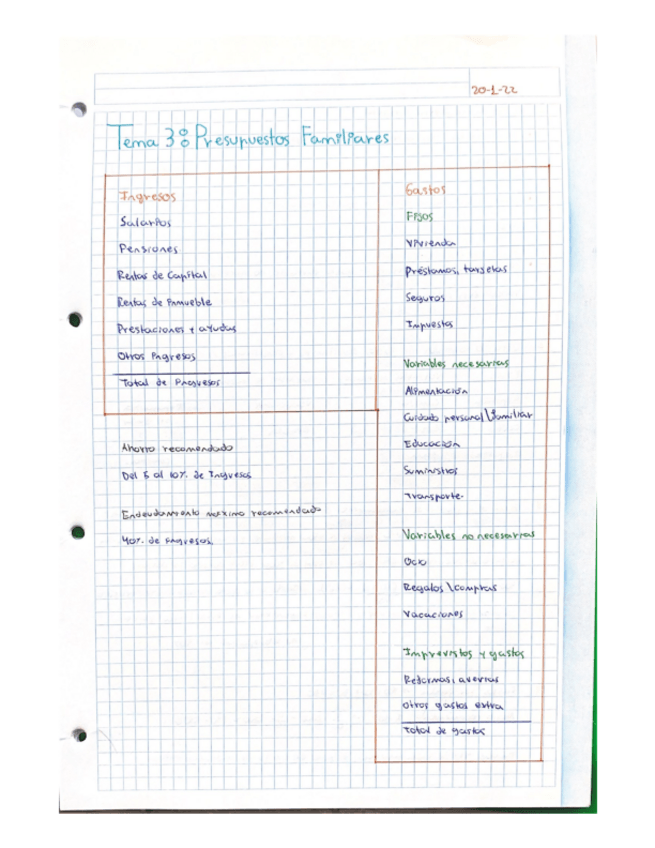 20-1-22
Tema 3: Presupuestos Familiares
Ingresos
Salarios
Pensiones
Rentas de Capital
Rentas de inmueble
Prestaciones y ayudas
Otros ingresos
Total de ingresos
Ahorro recomendado
Del 5 al 10% de Ingresos
Endeudamiento máximo recomendado
40% de ingresos.
Gastos
Fijos
Vivienda
Préstamos, tarjetas
Seguros
Impuestos
Variables necesarias
Alimentación
Cuidado personal\familiar
Educación
Suministros
Transporte.
Variables no necesarias
Ocio
Regalos\compras
Vacaciones
Imprevistos y gastos
Reformas, averias
otros gastos extra
Total de gastos